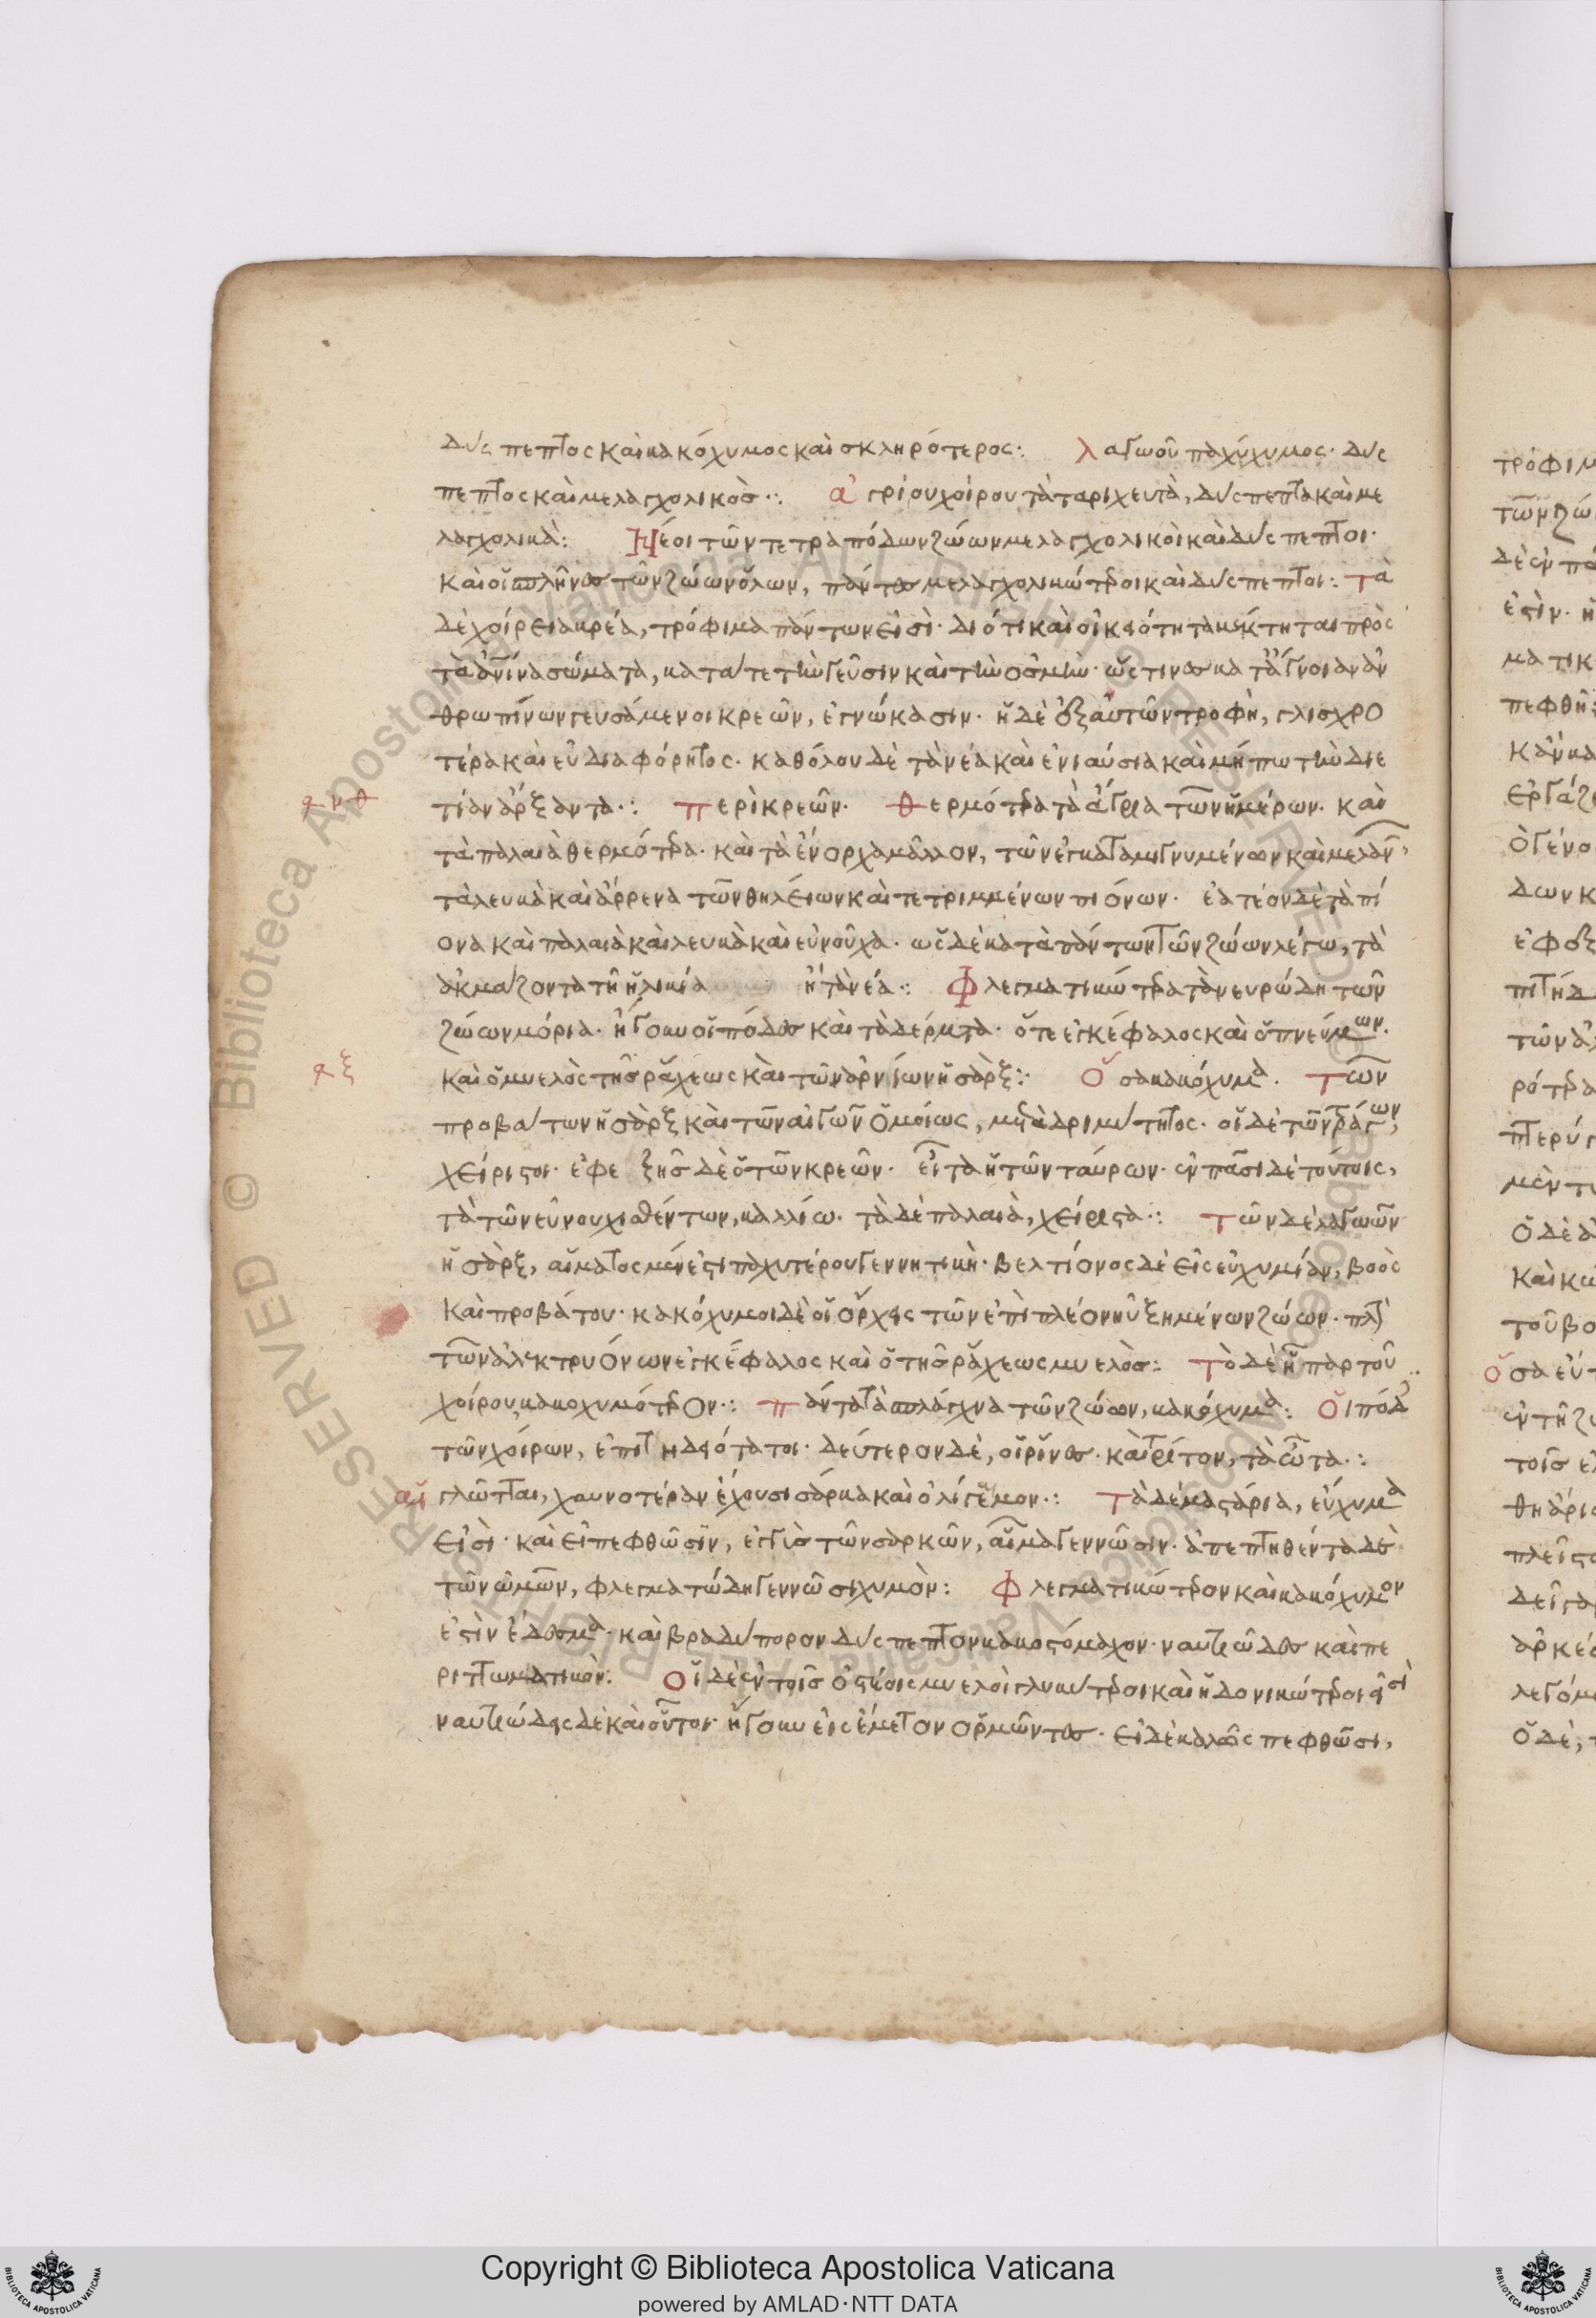 δύσπεπτος καὶ κακόχυμος καὶ σκληρότερος· λαγωοῦ παχύχυμος· δύσ
πεπτος καὶ μελαγχολικὸς· ἀγρίου χοίρου τὰ ταριχευτὰ, δύσπεπτα καὶ με
λαγχολικὰ: Νέοι τῶν τετραπόδων ζώων μελαγχολικοὶ καὶ δύσπεπτοι·
καὶ οἱ σπλῆνες τῶν ζώων ὅλων, πάντες μελαγχολικώτεροι καὶ δύσπεπτοι: τὰ
δὲ χοίρεια κρέα, τρόφιμα πάντων εἰσὶ· διότι καὶ οἰκειότητα κέκτηται πρὸς
τὰ ἀνινα σώματα, κατά τε τὴν γεῦσιν καὶ τὴν ὀσμὴν· ὥς τινες κατ' ἄγνοιαν ἀν
θρωπίνων γευσάμενοι κρεῶν, ἐγνώκασιν· ἡ δὲ ἐξ αὐτῶν τροφὴ, γλισχρο
τέρα καὶ εὐδιαφόρητος· καθόλου δὲ τὰ νέα καὶ ἐνιαύσια καὶ μήπω τὴν διε
τίαν ἄρξαντα·: περὶ κρεῶν· θερμότερα τὰ ἄγρια τῶν ἡμέρων· καὶ
τὰ παλαιὰ θερμότερα· καὶ τὰ ἔνορχα μᾶλλον, τῶν
τὰ λευκὰ καὶ ἄρρενα τῶν θηλείων καὶ τετριμμένων πιόνων· ἐατέον δὲ τὰ πί
ονα καὶ παλαιὰ καὶ λευκὰ καὶ εὐνοῦχα· ὡς δὲ κατὰ πάντων τῶν ζώων λέγω, τὰ
ἀκμάζοντα τῇ ἡλικίᾳ ἢ τὰ νέα·: Φλεγματικώτερα τὰ νευρώδη τῶν
ζώων μόρια· ἤγουν οἱ πόδες καὶ τὰ δέρματα· ὅ τε ἐγκέφαλος καὶ ὁ πνεύμων·
καὶ ὁ μυελὸς τῆς ῥάχεως καὶ τῶν ἀρνίων ἡ σὰρξ: Ὅσα κακόχυμα· τῶν
προβάτων ἡ σὰρξ καὶ τῶν αἰγῶν ὁμοίως, μετὰ δριμύτητος· οἱ δὲ τῶν τράγων,
χείριστοι· ἐφεξῆς δὲ ὁ τῶν κρεῶν· εἶτα ἡ τῶν ταύρων· ἐν πᾶσι δὲ τούτοις,
τὰ τῶν εὐνουχισθέντων, καλλίω· τὰ δὲ παλαιὰ, χείριστα·: τῶν δὲ λαγωῶν
ἡ σὰρξ, αἵματος μέν ἐστι παχυτέρου γεννητικὴ· βελτίονος δὲ εἰς εὐχυμίαν, βοὸς
καὶ προβάτου· κακόχυμοι δὲ οἱ ὄρχεις τῶν ἐπὶ πλέον ηὐξημένων ζώων· πλὴν
τῶν ἀλεκτρυόνων ἐγκέφαλος καὶ ὁ τῆς ῥάχεως μυελὸς: τὸ δὲ ἧπαρ τοῦ
χοίρου, κακοχυμότερον·: πάντα τὰ σπλάγχνα τῶν ζώων, κακόχυμα: οἱ πόδες
τῶν χοίρων, ἐπιτηδειότατοι· δεύτερον δὲ, οἱ ῥῖνες· καὶ τρίτον, τὰ ὦτα·:
αἱ γλῶτται, χαυνοτέραν ἔχουσι σάρκα καὶ ὀλίγαιμον·: Τὰ δὲ μαστάρια, εὔχυμά
εἰσὶ· καὶ εἰ πεφθῶσιν, ἐγγὺς τῶν σαρκῶν, αἷμα γεννῶσιν· ἀπεπτηθέντα δὲ
τῶν ὠμῶν, φλεγματώδη γεννῶσι χυμὸν: Φλεγματικώτερον καὶ κακόχυμον
ἐστὶν ἔδεσμα· καὶ βραδύπορον δύσπεπτον κακοστόμαχον· ναυτιῶδες καὶ πε
ριττωματικὸν: Οἱ δὲ ἐν τοῖς ὀστέοις μυελοὶ γλυκύτεροι καὶ ἡδονικώτεροί εἰσι
ναυτιώδεις δὲ καὶ οὗτοι· ἤγουν εἰς ἔμετον ὁρμῶντες· εἰ δὲ καλῶς πεφθῶσι,